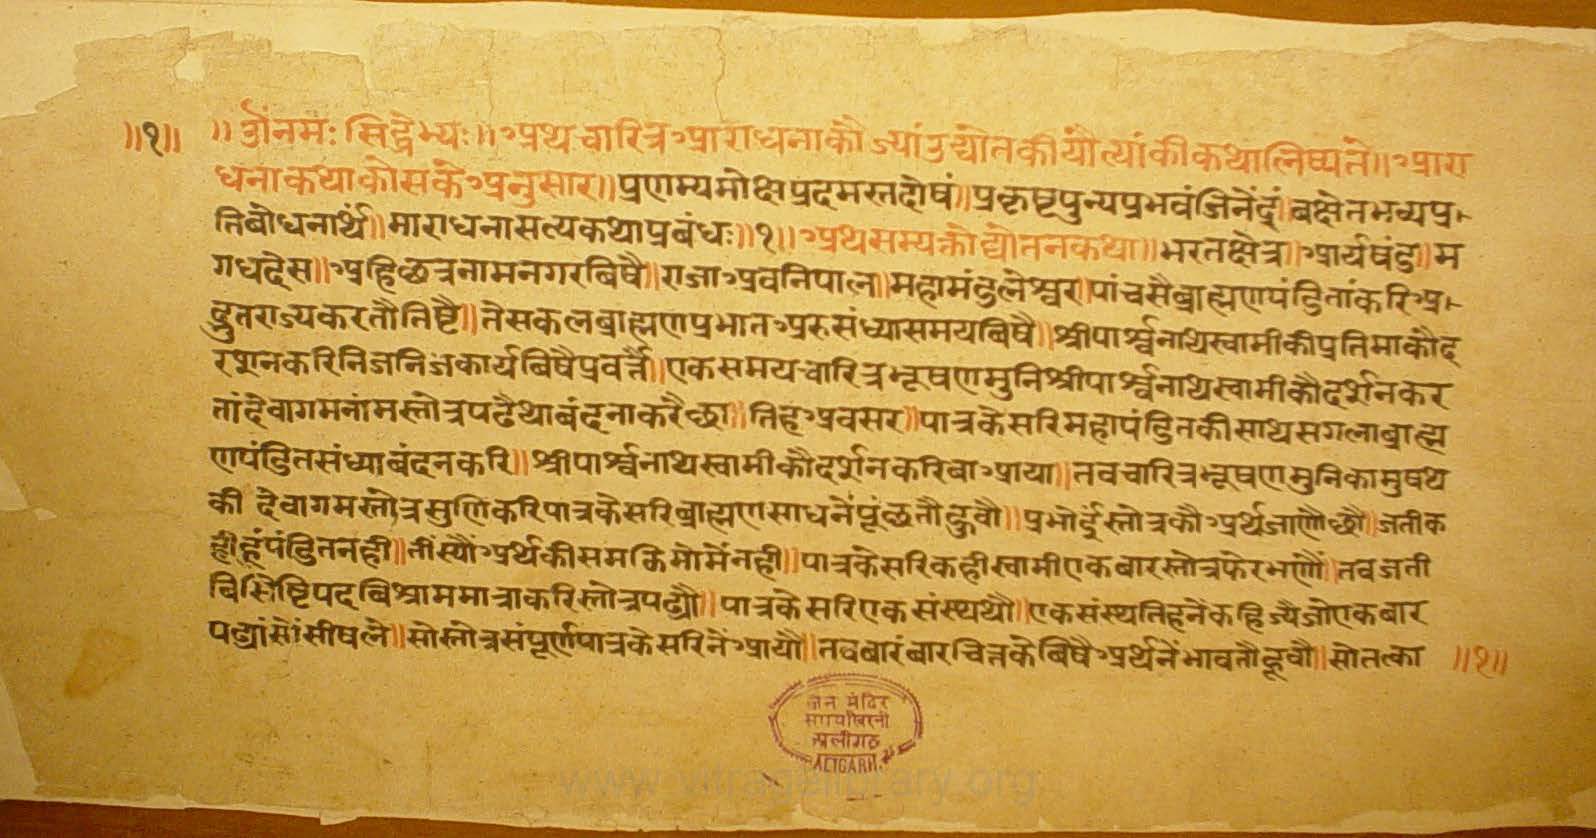 ॥१॥ ॥ ॐनमः सिद्धेभ्यः॥ अथ चारित्र आराधनाकौ ज्यां उद्योतकीयौ त्यांकी कथा लिष्यते॥ आरा
धनाकथाकोसकै अनुसार॥ प्रणम्यमोक्षप्रदमस्तदोषं॥ प्रकृष्टपुन्यप्रभवंजिनेंद्रं॥ बक्षेतभव्यप्र-
तिबोधनार्थं॥ माराधनासत्यकथाप्रबंधः॥१॥ अथसम्यक्तोद्योतनकथा॥ भरतक्षेत्र॥ आर्यषंड॥ म
गधदेस॥ अहिछत्रनामनगरबिषै॥ राजा अवनिपाल॥ महामंडलेश्वर॥ पांचसैब्राह्मणपंडितांकरि अ-
द्भुतराज्यकरतौतिष्टै॥ तेसकलब्राह्मणप्रभात अरुसंध्यासमयबिषै॥ श्रीपार्श्वनाथस्वामीकीप्रतिमाकौद
रशनकरिनिजनिजकार्यबिषैप्रवर्त्तै॥ एकसमयचारित्रभूषणमुनिश्रीपार्श्वनाथस्वामीकौदर्शनकर
तांदेवागमनांमस्तोत्रपढैथाबंदनाकरैछा॥ तिह अवसर॥ पात्रकेसरिमहापंडितकीसाथसगलाब्राह्म
णपंडितसंध्याबंदनकरि॥ श्रीपार्श्वनाथस्वामीकौदर्शनकरिबा आया॥ तवचारित्रभूषणमुनिकामुषथ
की देवागमस्तोत्रसुणिकरिपात्रकेसरिब्राह्मणसाधनेंपूंछतौहुवौ॥ प्रभोईंस्तोत्रकौ अर्थजाणौछौ॥ जतीक
हीहूंपंडितनही॥ तींस्यौं अर्थकीसमक्तिमोमेंनही॥ पात्रकेसरिकहीस्वामीएकबारस्तोत्रफेरभणौं॥ तवजती
बिसिष्टिपदबिश्राममात्राकरिस्तोत्रपढ्यौ॥ पात्रकेसरिएकसंस्थथौ॥ एकसंस्थतिहनेंकहिज्यैजोएकबार
पढ्यांसोंसीषले॥ सोस्तोत्रसंपूर्णपात्रकेसरिनें आयौ॥ तवबारंबारचित्तकेबिषै अर्थनेंभावतौहूवौ॥ सोतत्का ॥१॥
जैन मंदिर
अलीगढ
ALIGARH
www.vitragelibrary.org